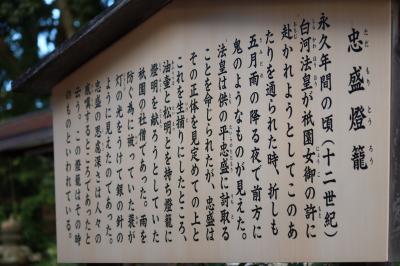 忠盛燈籠
ただもりとうろう
永久年間の頃(十二世紀)
白河法皇が祇園女御の許に
赴かれようとしてこのあ
たりを通られた時、折しも
五月雨の降る夜で前方に
鬼のようなものが見えた。
法皇は供の平忠盛に討取る
ことを命じられたが、忠盛は
その正体を見定めての上と
これを生捕りにしたところ、
油壷と松明とを持ち燈籠に
燈明を献じようとしていた
祇園の社僧であった。雨を
防ぐ為に被っていた蓑が
灯の光をうけて銀の針の
ように見えたのであった。
忠盛の思慮深さは人々の
感嘆するところであったと
云う。この燈籠はその時
のものといわれている。